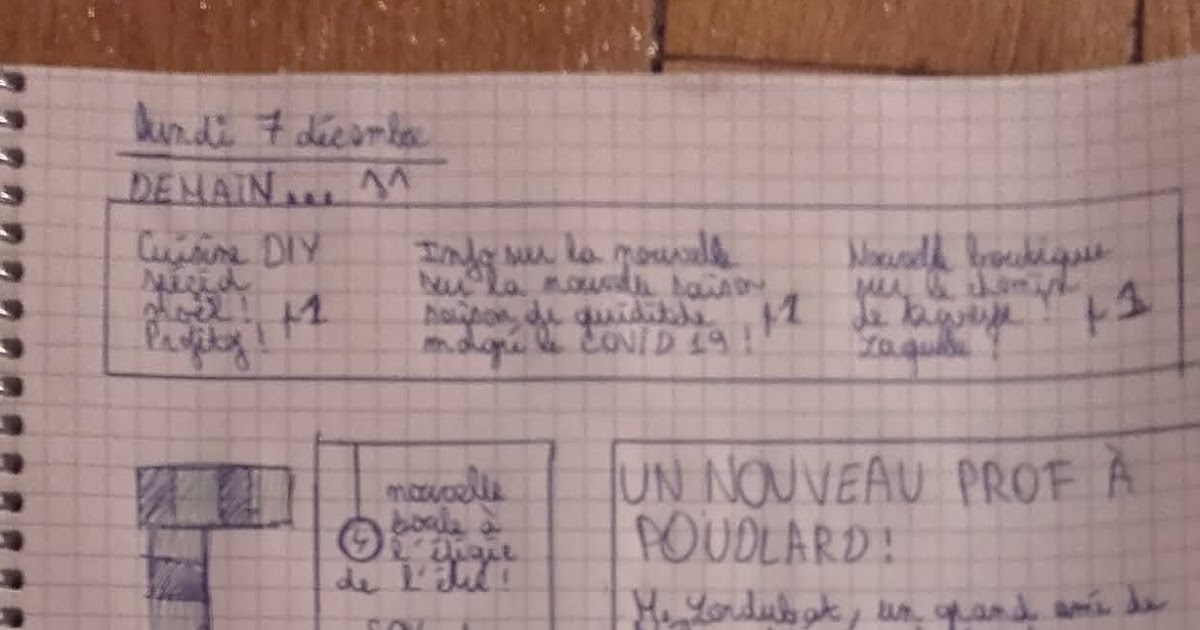 lundi 7 décembre
DEMAIN... ^^
Cuisine DIY
spécial
noël ! +1
Profitez !
Info sur la nouvelle
sur la nouvelle saison
saison de quiditch +1
malgré le COVID 19 !
Nouvelle boutique
sur le chemin
de traverse ! +1
nouvelle
boule à
l'éfigie
de l'élu !
UN NOUVEAU PROF À
POUDLARD !
un grand ami de